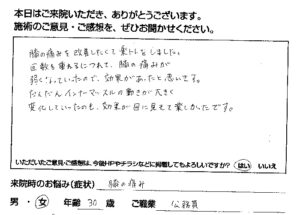 本日はご来院いただき、ありがとうございます。
施術のご意見・ご感想を、ぜひお聞かせください。
腕の痛みを改善したくて来トしました。
回数を重ねるにつれて、腕の痛みが
弱くなっていったので、効果があったと思います。
だんだんインナーマッスルの動きが大きく
変化していったのも、効果が目に見えて楽しかったです。
いただいたご意見・ご感想は、今後HPやチラシなどに掲載してもよろしいですか？ はい いいえ
来院時のお悩み（症状） 腕の痛み
男・女 年齢 30 歳 ご職業 公務員